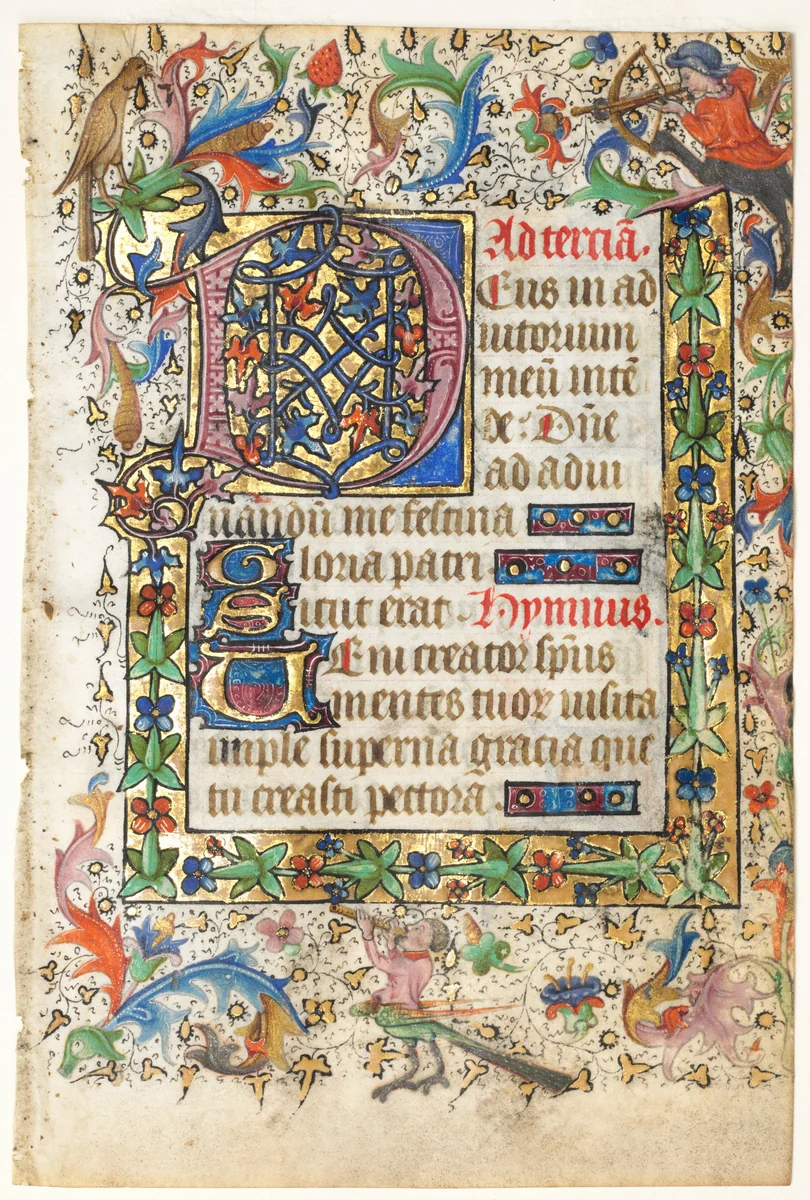 Ad terciã.
DEus in ad
iutorium
meũ intẽ
de: Dñe
ad adiu
uandũ me festina
Gloria patri
Sicut erat Hymnus.
UEni creator sp̃us
mentes tuoꝝ uisita
imple superna gracia que
tu creasti pectora